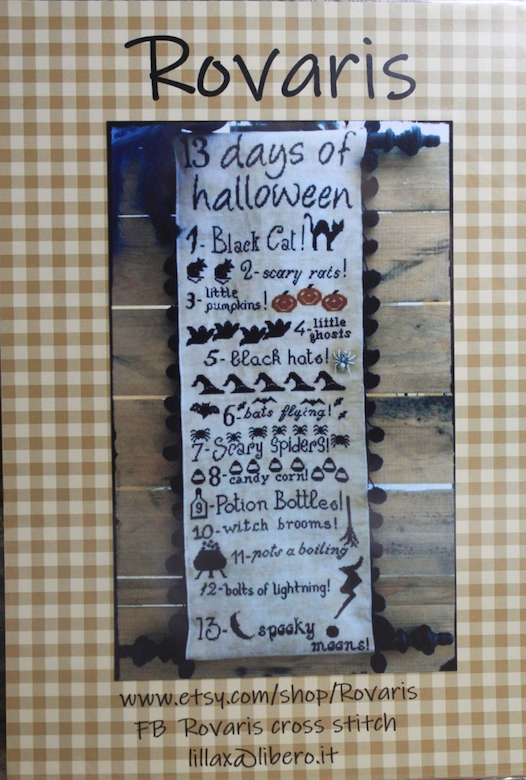 Rovaris
13 days of
halloween
1- Black Cat!
2- scary rats!
3- little
pumpkins!
4- little
ghosts
5- black hats!
6- bats flying!
7- Scary spiders!
8- candy corn!
9 -Potion Bottles!
10- witch brooms!
11- pots a boiling
12- bolts of lightning!
13- spooky
moons!
www.etsy.com/shop/Rovaris
FB Rovaris cross stitch
lillax@libero.it